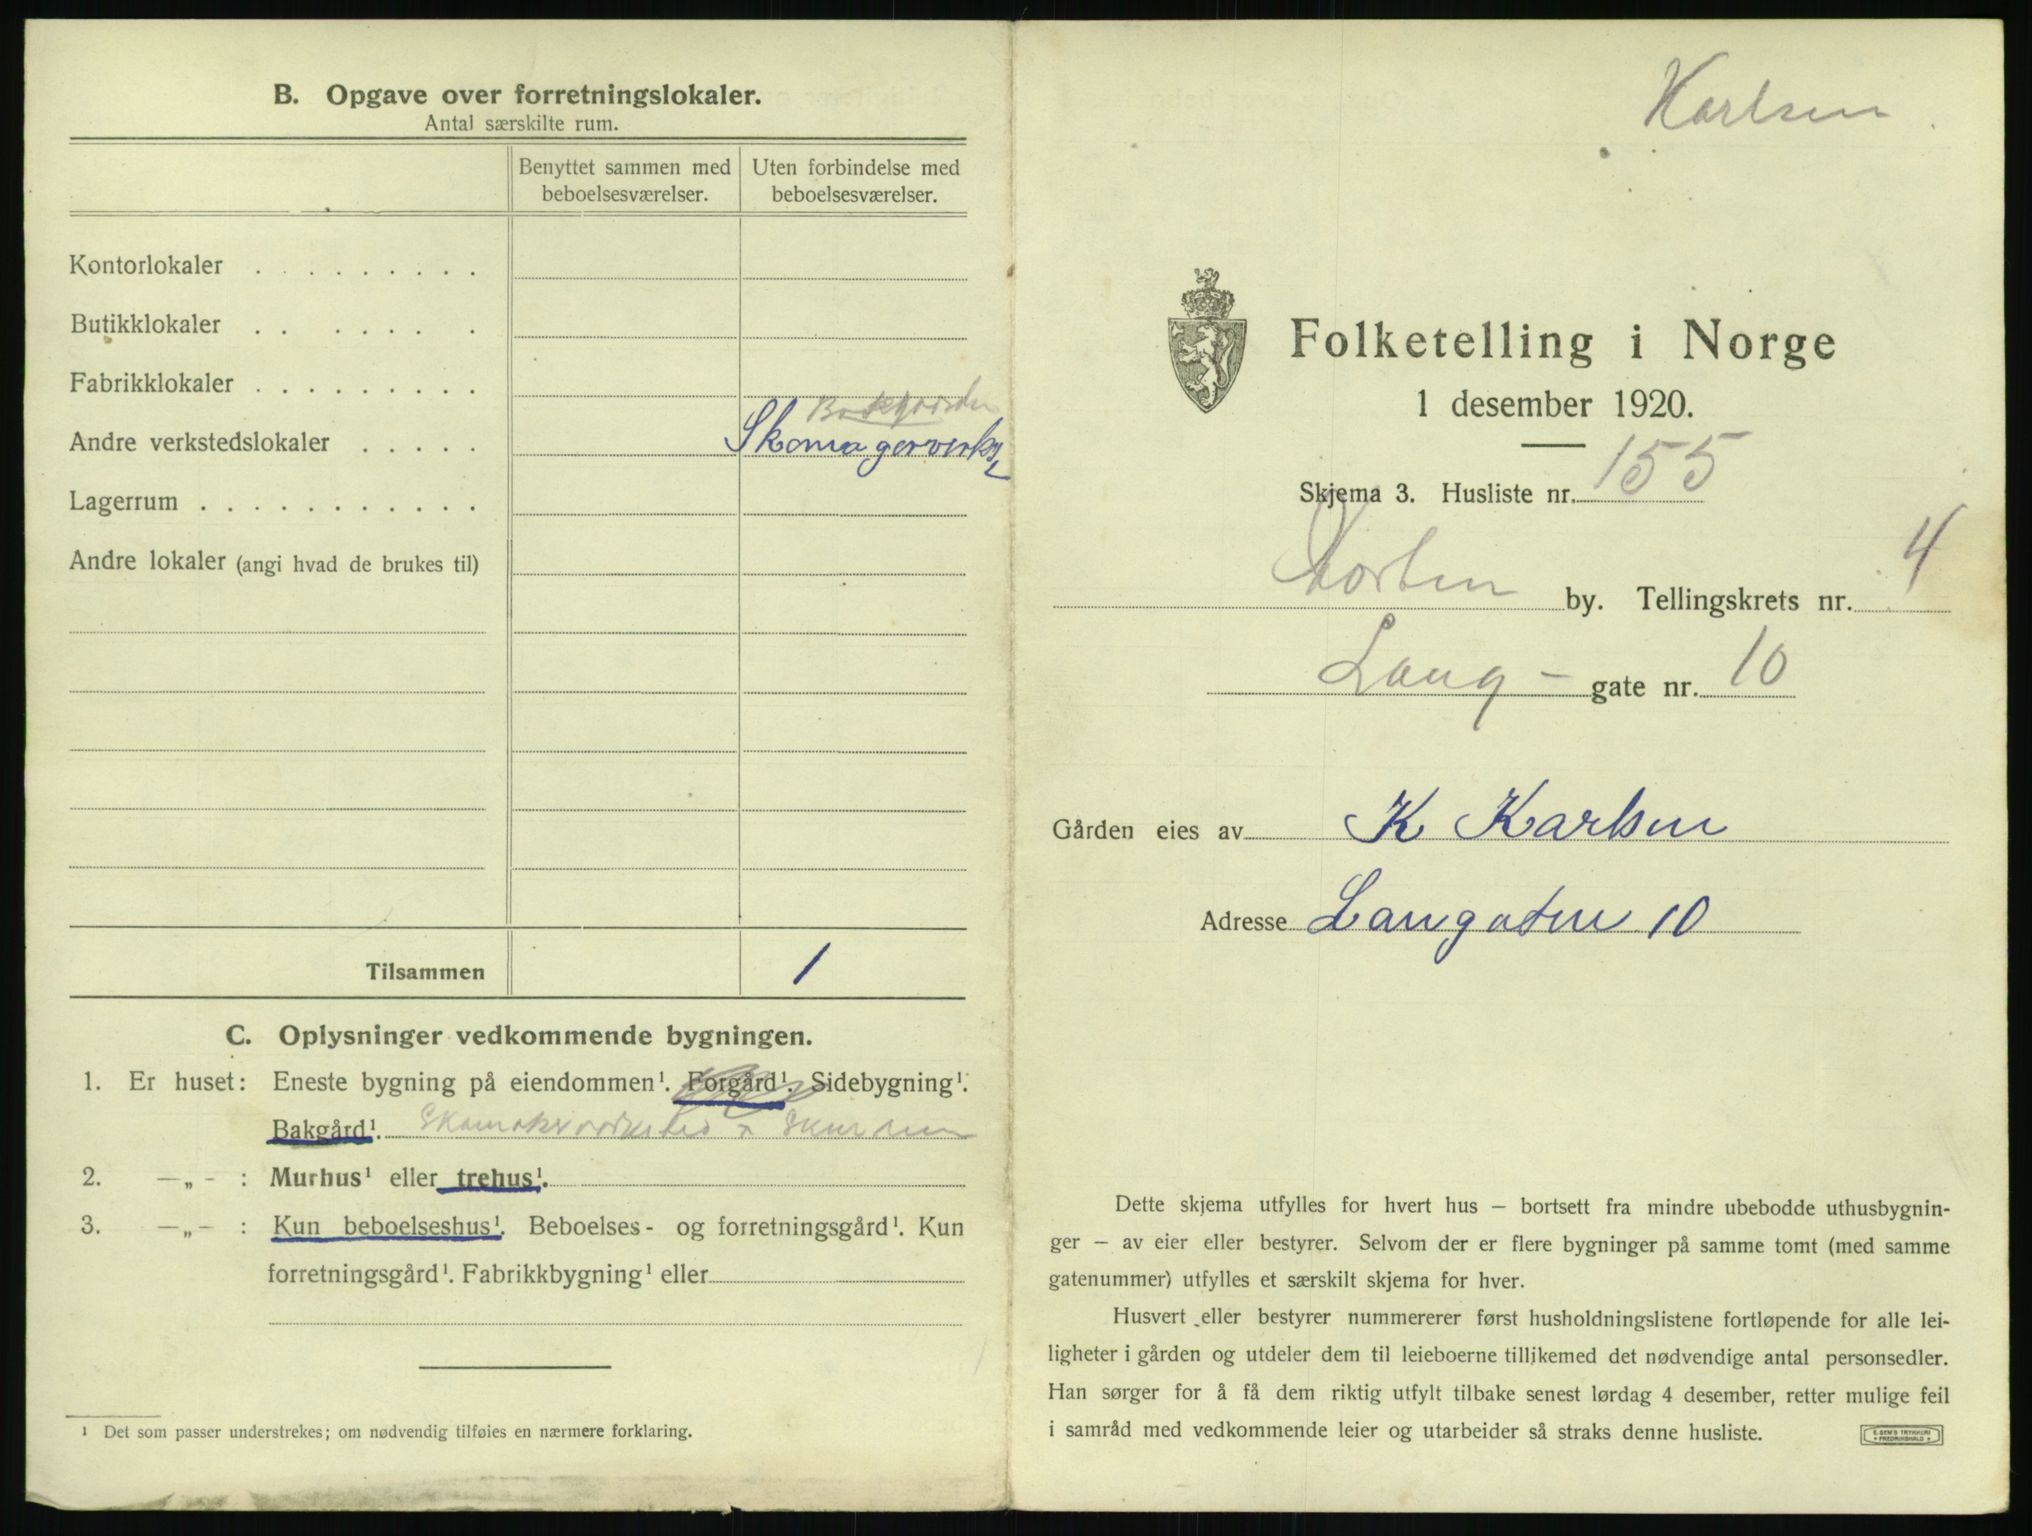 B. Opgave over forretningslokaler.
Antal særskilte rum.
Benyttet sammen med beboelsesværelser.
Uten forbindelse med beboelsesværelser.
Kontorlokaler . . . . . . . . .
Butikklokaler . . . . . . .
Fabrikklokaler . . . . . . . . .
Bakgaarden
Andre verkstedslokaler . . . . . Skomagerverks
Lagerrum . . . . . . . . . . .
Andre lokaler (angi hvad de brukes til)
Tilsammen 1
C. Oplysninger vedkommende bygningen.
1. Er huset: Eneste bygning på eiendommen¹. Forgård¹. Sidebygning¹.
Bakgård¹.
2. —„— : Murhus¹ eller trehus¹.
3. —„— : Kun beboelseshus¹. Beboelses- og forretningsgård¹. Kun
forretningsgård¹. Fabrikkbygning¹ eller
¹ Det som passer understrekes; om nødvendig tilføies en nærmere forklaring.
Karlsen
Folketelling i Norge
1 desember 1920.
Skjema 3. Husliste nr. 155
Horten by. Tellingskrets nr. 4
Lang - gate nr. 10
Gården eies av K Karlsen
Adresse Langaten 10
Dette skjema utfylles for hvert hus – bortsett fra mindre ubebodde uthusbygnin-
ger – av eier eller bestyrer. Selvom der er flere bygninger på samme tomt (med samme
gatenummer) utfylles et særskilt skjema for hver.
Husvert eller bestyrer nummererer først husholdningslistene fortløpende for alle lei-
ligheter i gården og utdeler dem til leieboerne tillikemed det nødvendige antal personsedler.
Han sørger for å få dem riktig utfylt tilbake senest lørdag 4 desember, retter mulige feil
i samråd med vedkommende leier og utarbeider så straks denne husliste.
E. SEM'S TRYKKERI
FREDRIKSHALD